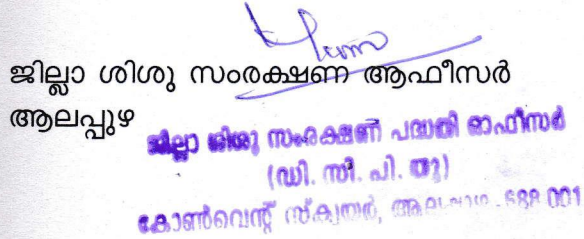 ജില്ലാ ശിശു സംരക്ഷണ ആഫീസർ
ആലപ്പുഴ
ജില്ലാ ശിശു സംരക്ഷണ പദ്ധതി ഓഫീസർ
(ഡി. സി. പി. യു)
കോൺവെന്റ് സ്ക്വയർ, ആലപ്പുഴ - 688 001